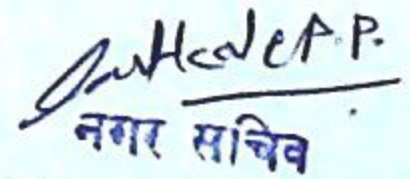 P.P.
नगर सचिव